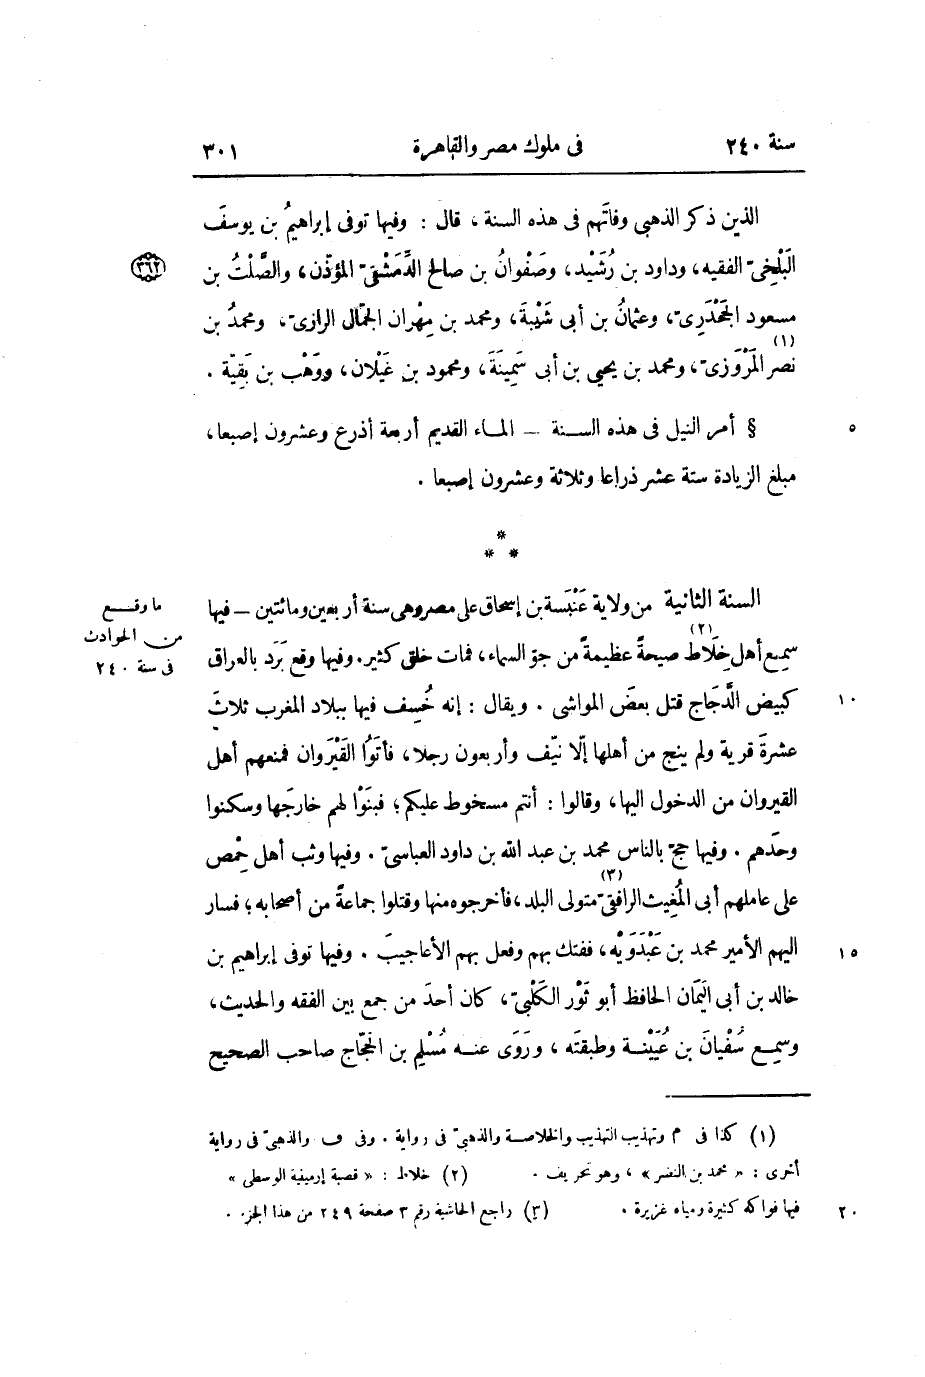 سنة ٢٤٠ فى ملوك مصر والقاهرة ٣٠١
الذين ذكر الذهبى وفاتَهم فى هذه السنة، قال : وفيها توفى إبراهيمُ بن يوسفَ
البَلْخِىّ الفقيه، وداود بن رُشَيْد، وصَفْوانُ بن صالح الدِّمَشْقِىّ المؤذّن، والصَّلْتُ بن
٣٦٢
مسعود الجَحْدَرِىّ، وعثمانُ بن أبى شَيْبةَ، ومحمد بن مِهْران الجَمّال الرازىّ، ومحمدُ بن
نصر المَرْوَزِىّ(١)، ومحمد بن يحيى بن أبى سَمِينَةَ، ومحمود بن غَيْلان، ووَهْب بن بَقِيّة .
§ أمر النيل فى هذه السنة — الماء القديم أربعة أذرع وعشرون إصبعا،
٥
مبلغ الزيادة ستة عشر ذراعا وثلاثة وعشرون إصبعا .
*
* *
السنة الثانية من ولاية عَنْبَسة بن إسحاق على مصر وهى سنة أربعين ومائتين — فيها
ما وقع
من الحوادث
فى سنة ٢٤٠
سمِع أهل خِلَاط(٢) صيحةً عظيمةً من جوّ السماء، فمات خلق كثير. وفيها وقع بَرَد بالعراق
كبيض الدَّجَاج قتل بعضَ المواشى . ويقال : إنه خُسِف فيها ببلاد المغرب ثلاثَ
١٠
عشرةَ قرية ولم ينج من أهلها إلّا نيّف وأربعون رجلا، فأتَوُا القَيْرَوان فمنعهم أهل
القيروان من الدخول اليها، وقالوا : أنتم مسخوط عليكم؛ فبنَوْا لهم خارجَها وسكنوا
وحدَهم . وفيها حجّ بالناس محمد بن عبد الله بن داود العباسىّ . وفيها وثب أهل حِمْص
على عاملهم أبى المُغِيث الرافقىّ(٣) متولى البلد، فأخرجوه منها وقتلوا جماعةً من أصحابه؛ فسار
اليهم الأمير محمد بن عَبْدَوَيْه، ففتك بهم وفعل بهم الأعاجيبَ . وفيها توفى إبراهيم بن
١٥
خالد بن أبى اليَمَان الحافظ أبو ثَوْر الكَلْبِىّ، كان أحدَ من جمع بين الفقه والحديث،
وسمِع سُفْيانَ بن عُيَيْنة وطبقتَه ، ورَوَى عنه مُسْلِم بن الحَجّاج صاحب الصحيح
(١) كذا فى م وتهذيب التهذيب والخلاصة والذهبىّ فى رواية . وفى ف والذهبىّ فى رواية
أخرى : « محمد بن النضر » ، وهو تحريف . (٢) خلاط : « قصبة إرمينية الوسطى »
فيها فواكه كثيرة ومياه غزيرة . (٣) راجع الحاشية رقم ٣ صفحة ٢٤٩ من هذا الجزء .
٢٠